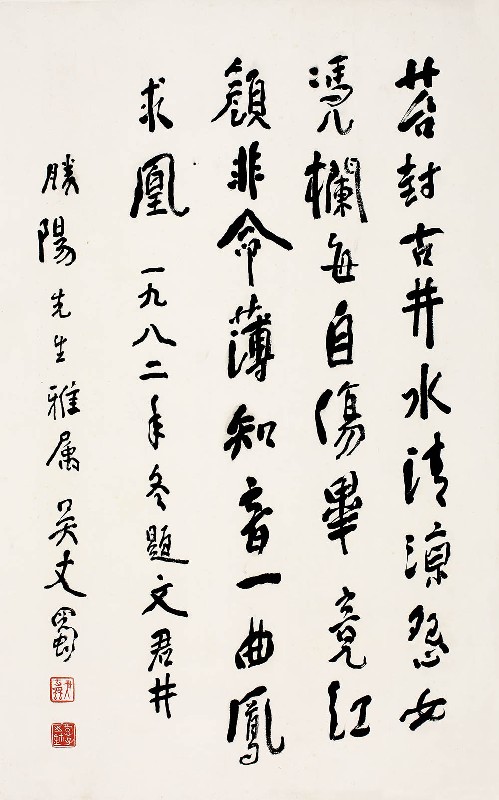 苔封古井水清涼怨女
憑欄每自傷畢竟紅
顏非命薄知音一曲鳳
求凰 一九八二年冬題文君井
勝陽先生雅屬 吳丈蜀